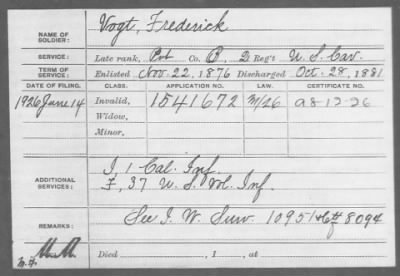 NAME OF SOLDIER: Vogt, Frederick
SERVICE: Late rank, Pvt Co. B, 2 Reg't U. S. Cav.
TERM OF SERVICE: Enlisted Nov. 22, 1876 Discharged Oct. 28, 1881
DATE OF FILING. CLASS. APPLICATION NO. LAW. CERTIFICATE NO.
1926 June 14 Invalid, 1541672 A 8-12-26
Widow,
Minor,
I, 1 Cal. Inf.
ADDITIONAL SERVICES: F, 37 U. S. Vol. Inf.
REMARKS: See I. W. Surv. 8094
Died , 1 , at